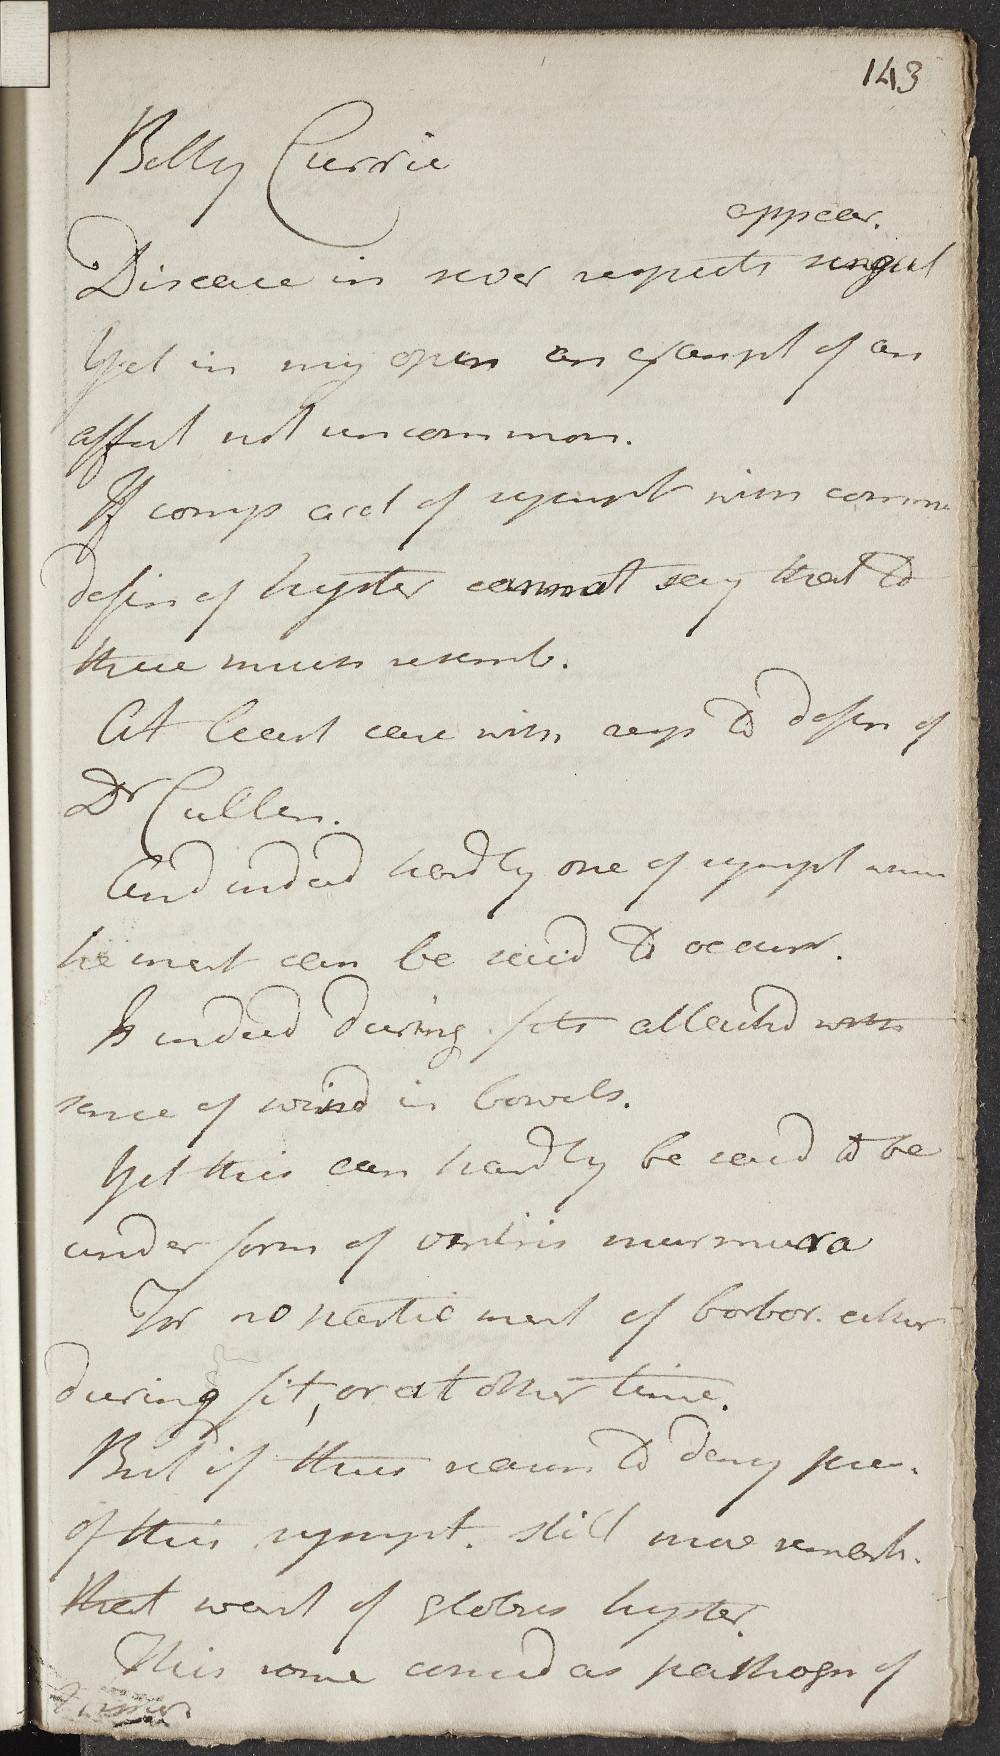 143
Betty Currie
appear.
Disease in sever respects singul
Yet in my opin an exampl of an
affect not uncommon.
If comp acct of sympt with comm
defin of hyster cannot say that to
these much resemb.
At least case with resp to defin of
Dr Cullen.
And indeed hardly one of sympt whi
he ment can be said to occurr.
Is indeed during fits attackd with
sense of wind in bowels.
Yet this can hardly be said to be
under form of ventris murmura
For no partic ment of borbor. either
during fit, or at other time.
But if thus reason to deny pres.
of this sympt. still more remark.
that want of globus hyster.
This some consid as pathogn of